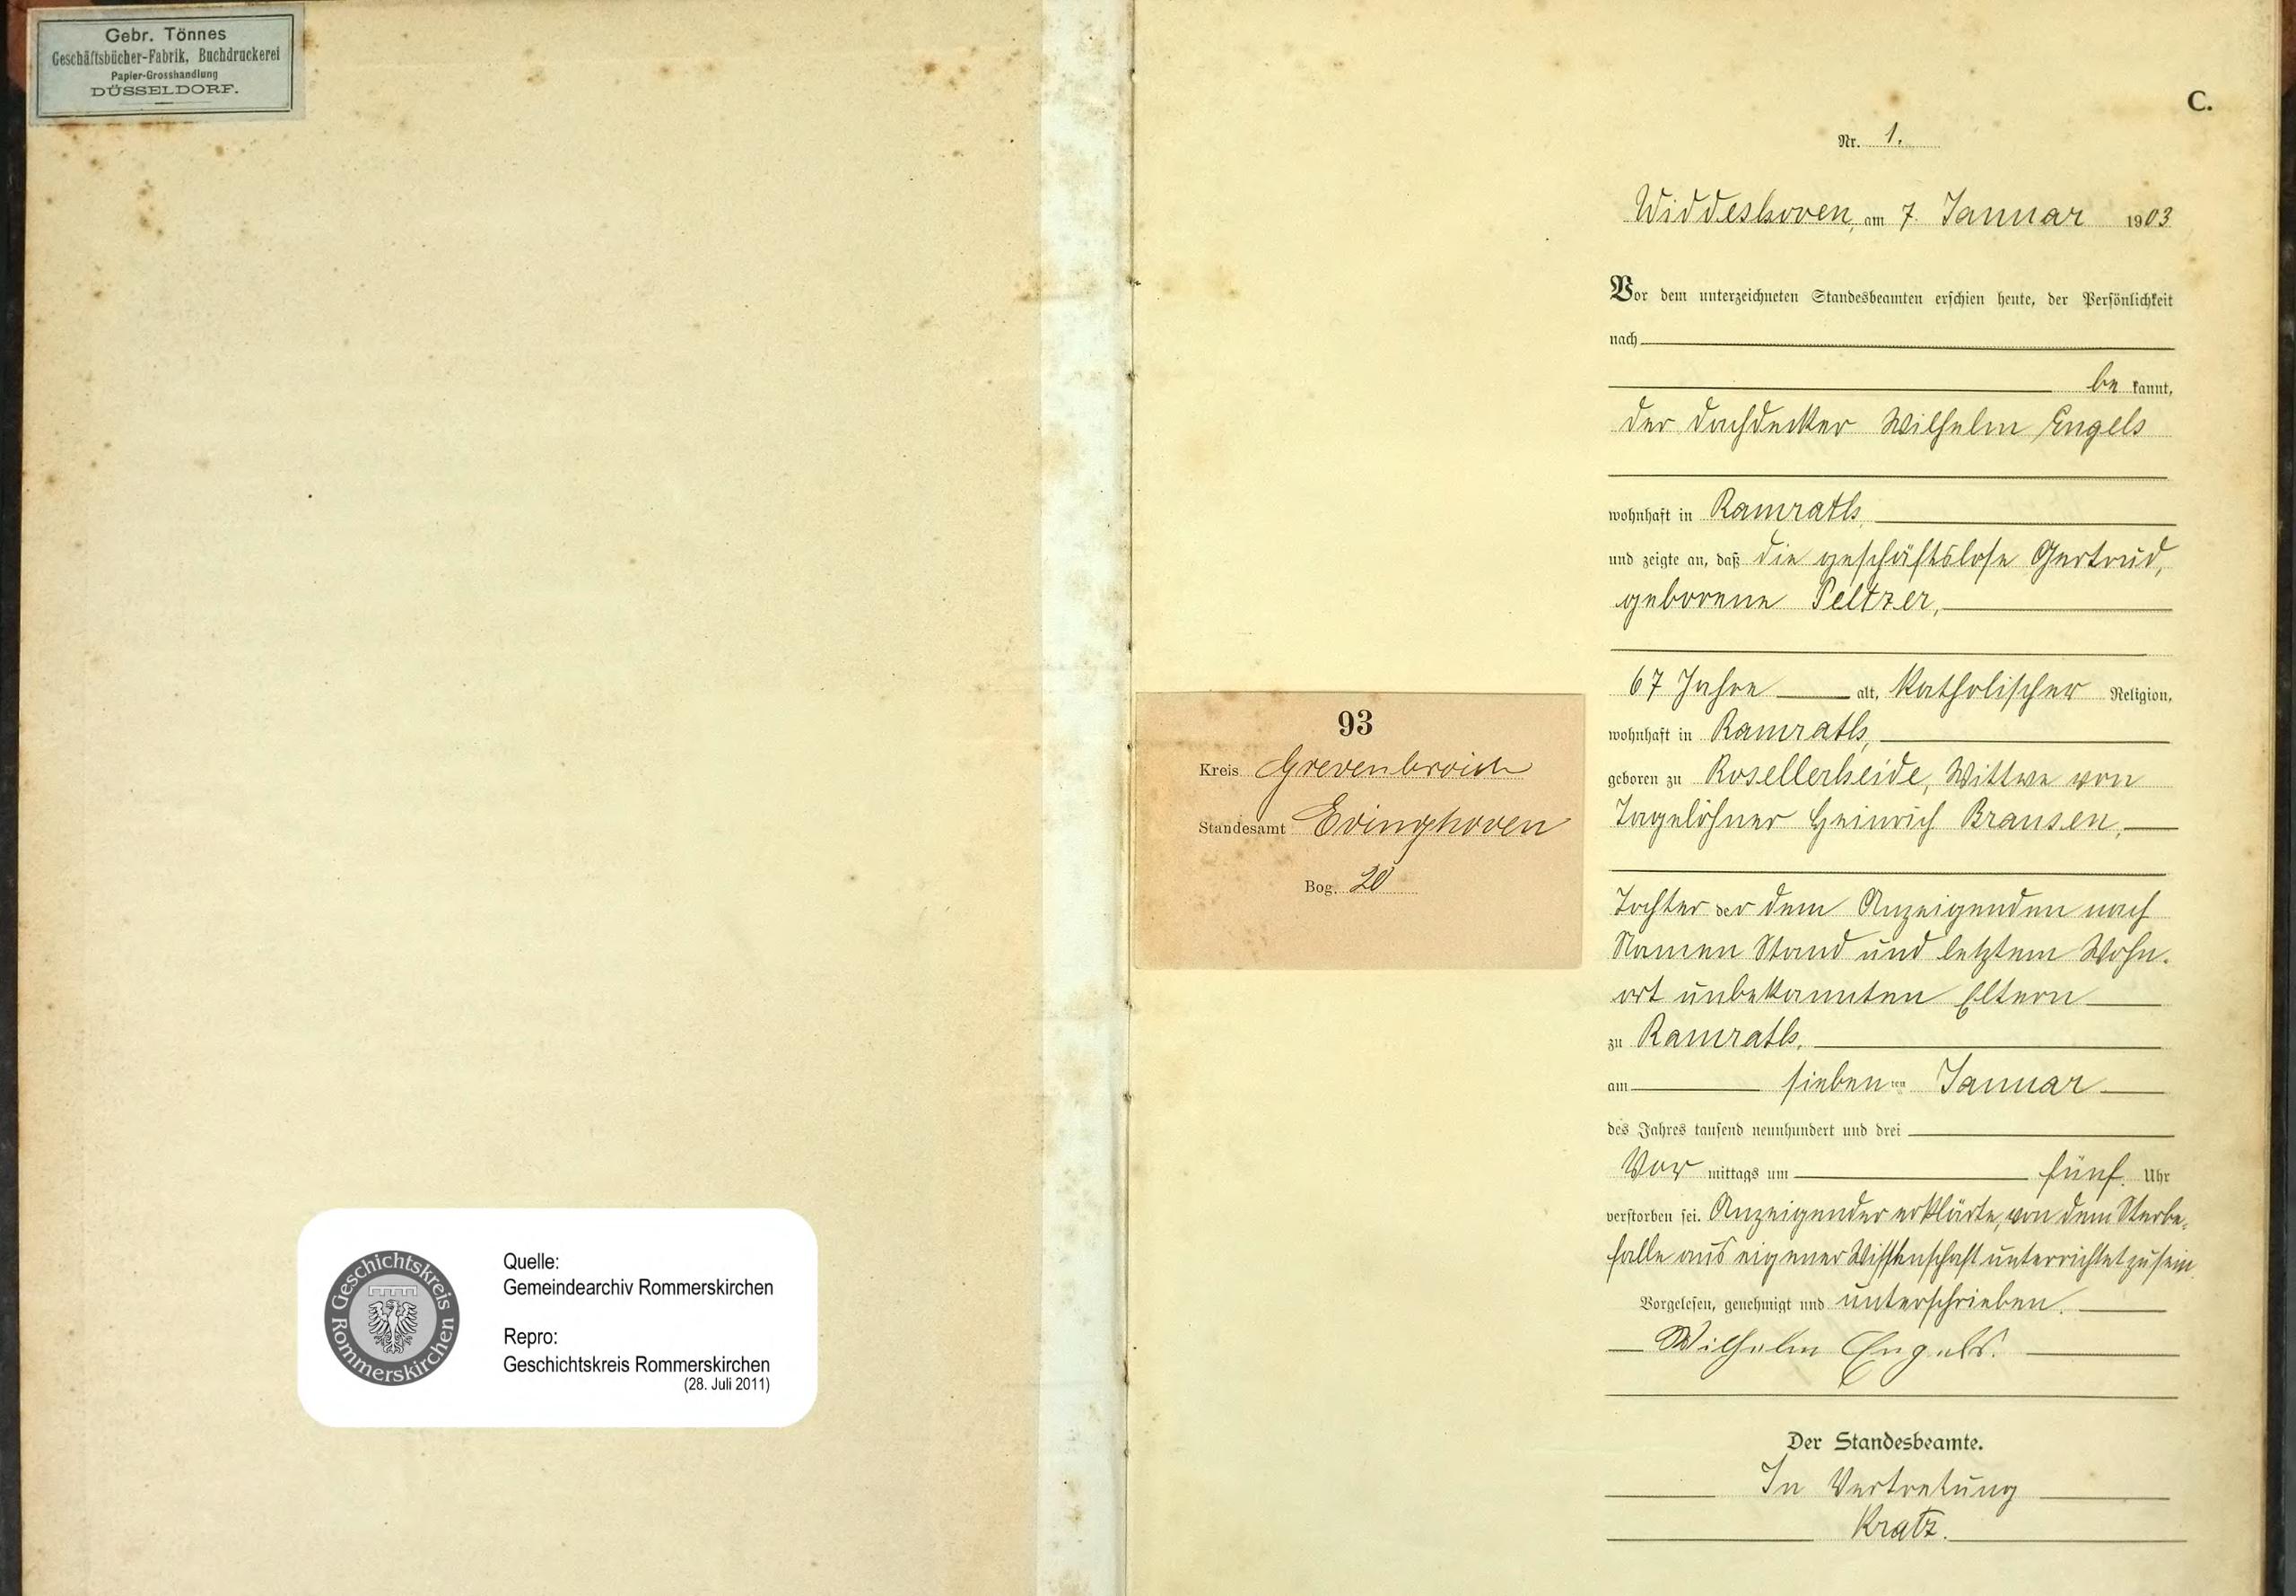 Gebr. Tönnes
Geschäftsbücher-Fabrik, Buchdruckerei
Papier-Grosshandlung
DÜSSELDORF.
C.
Nr. 1.
Widdeshoven, am 7. Januar 1903
Vor dem unterzeichneten Standesbeamten erschien heute, der Persönlichkeit
nach
be kannt,
der Dachdecker Wilhelm Engels
wohnhaft in Ramrath
und zeigte an, daß die geschäftslose Gertrud,
geborene Peltzer,
67 Jahre alt, katholischer Religion,
wohnhaft in Ramrath,
geboren zu Rosellerheide, Wittwe von
Tagelöhner Heinrich Brausen,
Tochter der dem Anzeigenden nach
Namen Stand und letztem Wohn-
ort unbekannten Eltern
zu Ramrath,
am sieben ten Januar
des Jahres tausend neunhundert und drei
Vor mittags um fünf Uhr
verstorben sei. Anzeigender erklärte, von dem Sterbe-
falle aus eigener Wissenschaft unterrichtet zu sein.
Vorgelesen, genehmigt und unterschrieben.
Wilhelm Engels.
Der Standesbeamte.
In Vertretung
Kratz.
93
Kreis Grevenbroich
Standesamt Evinghoven
Bog. 20
Geschichtskreis Rommerskirchen
Quelle:
Gemeindearchiv Rommerskirchen
Repro:
Geschichtskreis Rommerskirchen
(28. Juli 2011)